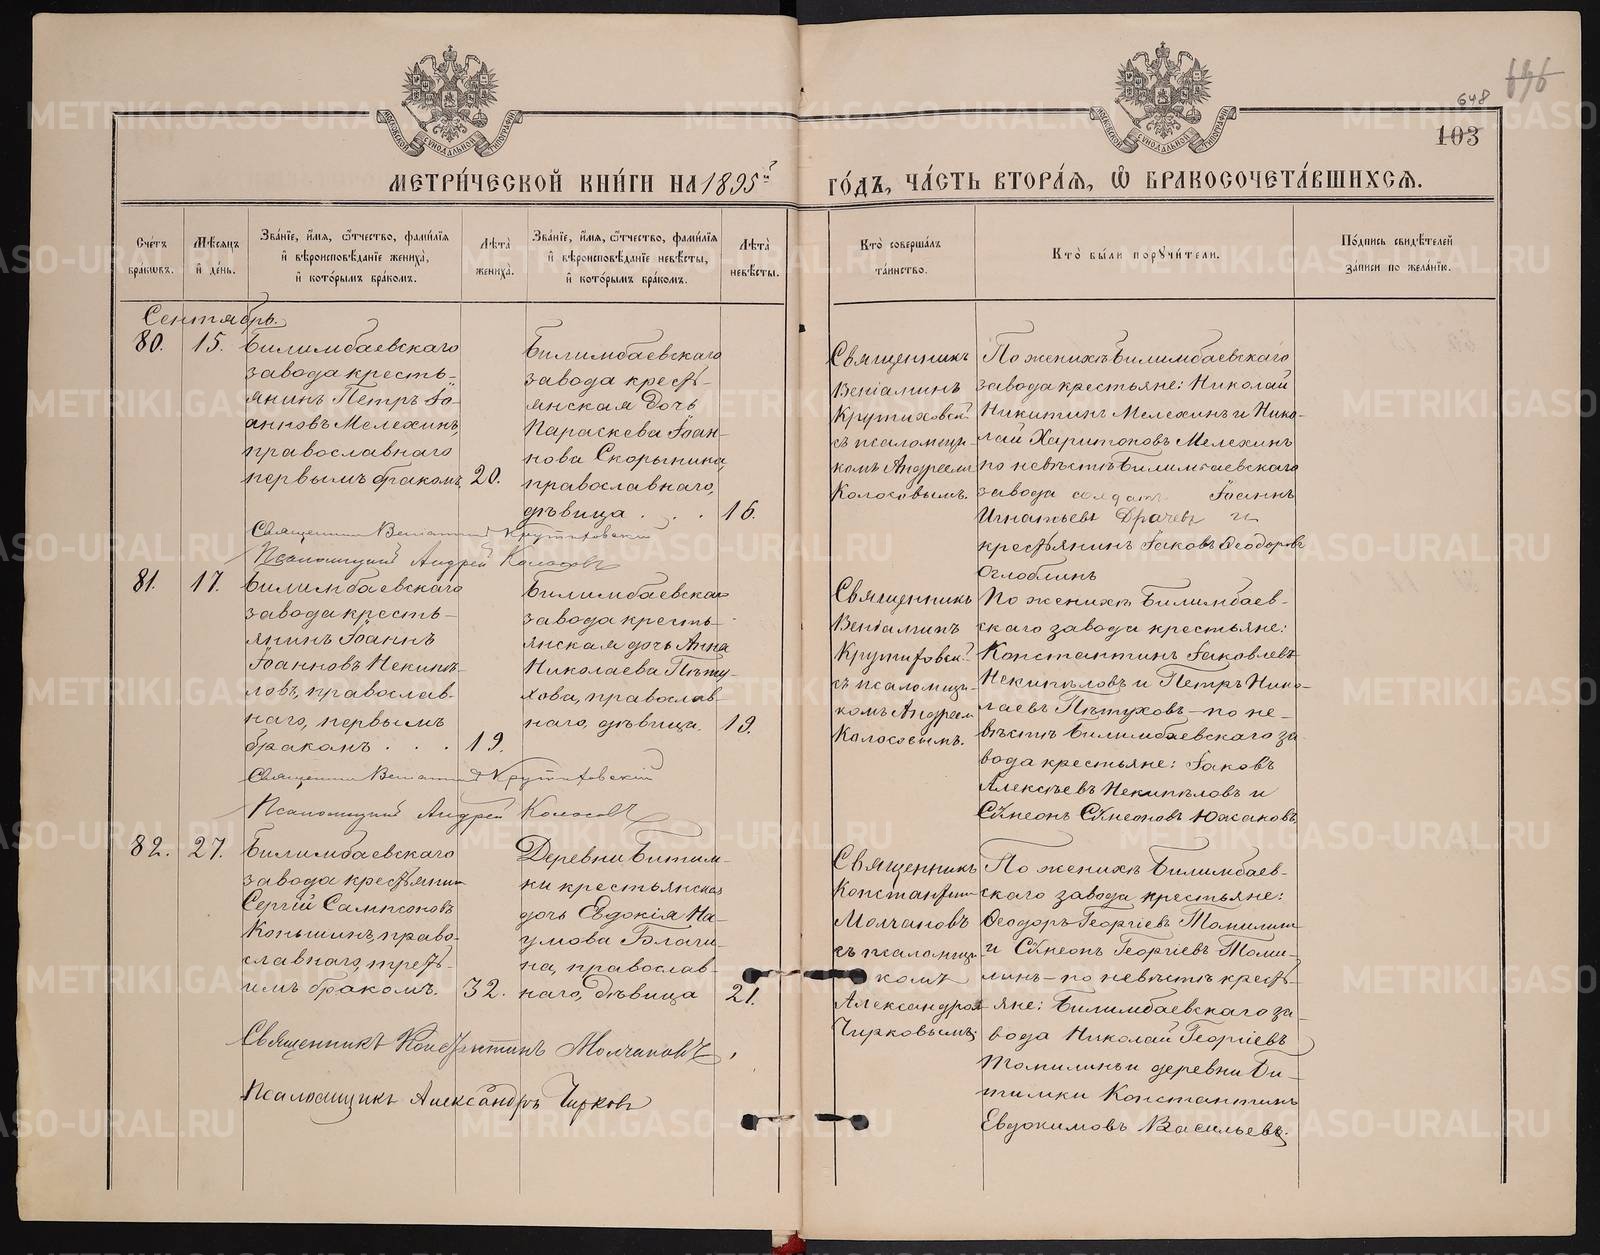 696
648
103
МОСКОВСКОЙ СУНОДАЛЬНОЙ ТИПОГРАФІИ
МОСКОВСКОЙ СУНОДАЛЬНОЙ ТИПОГРАФІИ
МЕТРИ́ЧЕСКОЙ КНИ́ГИ НА 1895й
ГО́ДЪ, ЧА́СТЬ ВТОРА́Я, Ѽ БРАКОСОЧЕТА́ВШИХСЯ.
Сче́тъ бра́кѡвъ.
Мѣ́сяцъ и҆ де́нь.
Зва́нїе, и҆́мя, ѻ҆́тчество, фамі́лїя
и҆ вѣроисповѣ́данїе жениха̀,
и҆ кото́рымъ бра́комъ.
Лѣ́та жениха̀.
Зва́нїе, и҆́мя, ѻ҆́тчество, фамі́лїя
и҆ вѣроисповѣ́данїе невѣ́сты,
и҆ кото́рымъ бра́комъ.
Лѣ́та невѣ́сты.
Кто̀ соверша́лъ та́инство.
Кто̀ бы́ли порꙋчи́тели.
По́дпись свидѣ́телей за́писи по жела́нїю.
Сентябрь.
80. 15.
Билимбаевскаго
завода кресть-
янинъ Петръ Іо-
анновъ Мелехинъ,
православнаго
первымъ бракомъ. 20.
Билимбаевскаго
завода кресть-
янская дочь
Параскева Іоан-
нова Скорынина,
православнаго,
дѣвица . . . 16.
Священникъ
Веніаминъ
Крутиховск.
съ псаломщи-
комъ Андреемъ
Колосовымъ.
По женихѣ Билимбаевскаго
завода крестьяне: Николай
Никитинъ Мелехинъ и Нико-
лай Харитоновъ Мелехинъ
по невѣстѣ Билимбаевскаго
завода солдатъ Іоаннъ
Игнатьевъ Драчевъ и
крестьянинъ Іаковъ Ѳеодоровъ
Оглоблинъ
Священникъ Веніаминъ Крутиховскій
Псаломщикъ Андрей Колосовъ
81. 17.
Билимбаевскаго
завода кресть-
янинъ Іоаннъ
Іоанновъ Некипѣ-
ловъ, православ-
наго, первымъ
бракомъ . . . 19.
Билимбаевскаго
завода кресть-
янская дочь Анна
Николаева Пѣту-
хова, православ-
наго, дѣвица. 19.
Священникъ
Веніаминъ
Крутиховск.
съ псаломщи-
комъ Андреемъ
Колосовымъ.
По женихѣ Билимбаев-
скаго завода крестьяне:
Константинъ Іаковлевъ
Некипѣловъ и Петръ Нико-
лаевъ Пѣтуховъ - по не-
вѣстѣ Билимбаевскаго за-
вода крестьяне: Іаковъ
Алексѣевъ Некипѣловъ и
Сѵмеонъ Сѵмеоновъ Южаковъ
Священникъ Веніаминъ Крутиховскій
Псаломщикъ Андрей Колосовъ
82. 27.
Билимбаевскаго
завода крестьянинъ
Сергій Сампсоновъ
Коньшинъ, право-
славнаго, треть-
имъ бракомъ. 32.
Деревни Битим-
ки крестьянская
дочь Евдокія На-
умова Благи-
на, православ-
наго, дѣвица 21.
Священникъ
Константинъ
Молчановъ
съ псаломщи-
комъ
Александромъ
Чирковымъ;
По женихѣ Билимбаев-
скаго завода крестьяне:
Ѳеодоръ Георгіевъ Томилинъ
и Сѵмеонъ Георгіевъ Томи-
линъ - по невѣстѣ кресть-
яне: Билимбаевскаго за-
вода Николай Георгіевъ
Томилинъ и деревни Би-
тимки Константинъ
Евдокимовъ Васильевъ.
Священникъ Константинъ Молчановъ,
Псаломщикъ Александръ Чирковъ